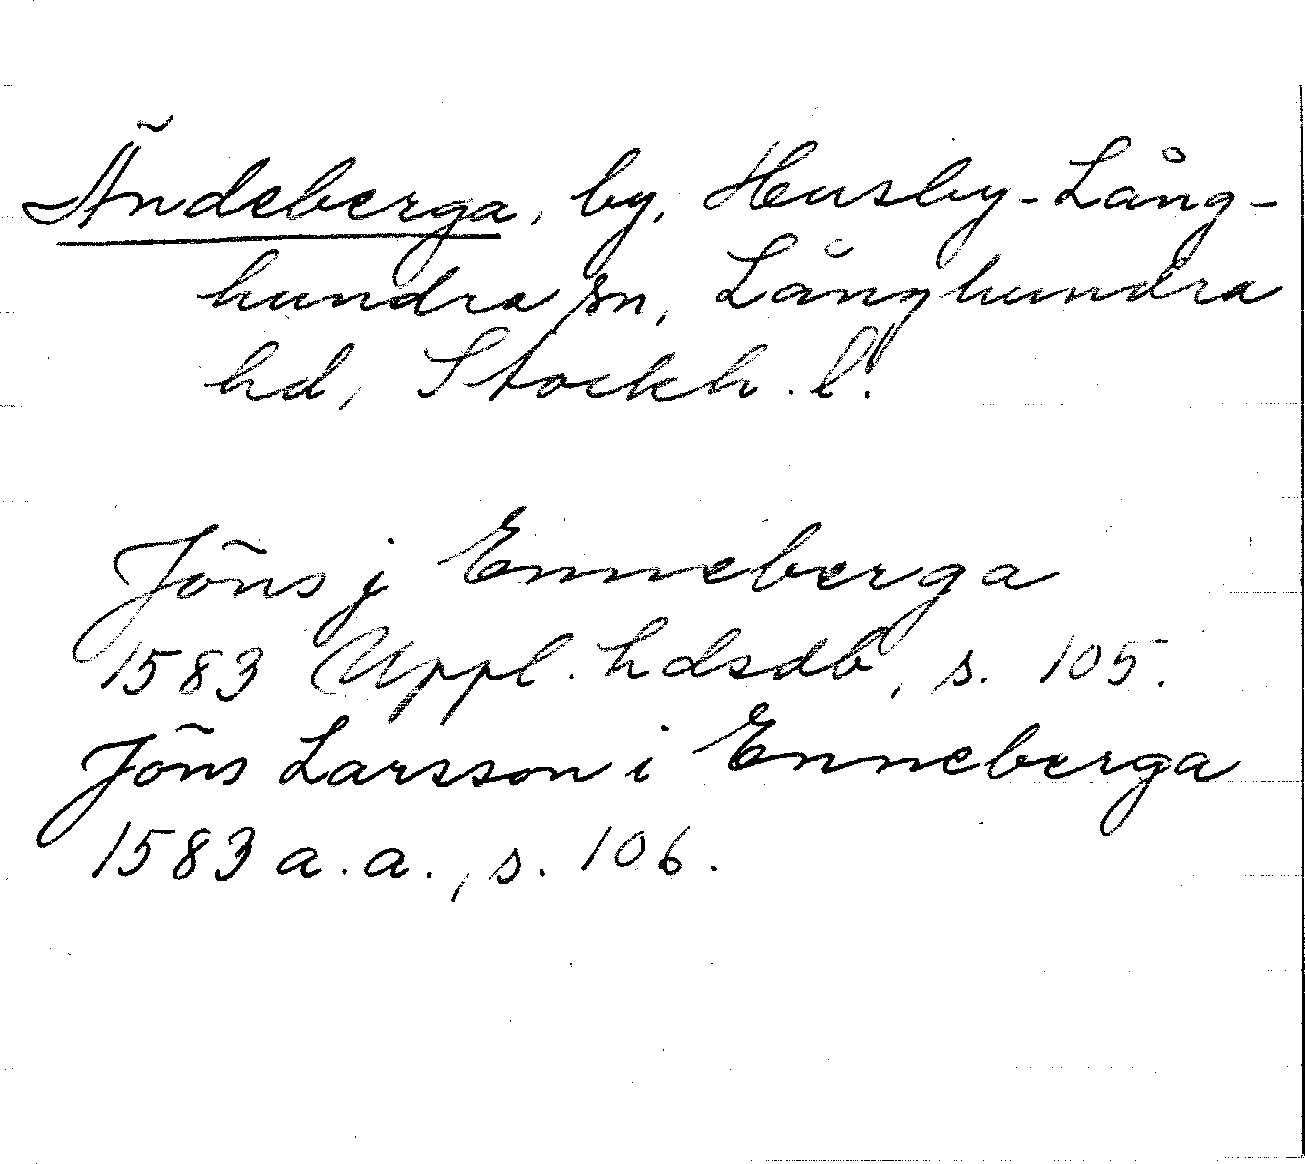 Ändeberga, by, Husby-Lång-
hundra sn, Långhundra
hd, Stockh. l.
Jöns j Enneberga
1583 Uppl. hdsdb, s. 105.
Jöns Larsson i Enneberga
1583 a.a., s. 106.